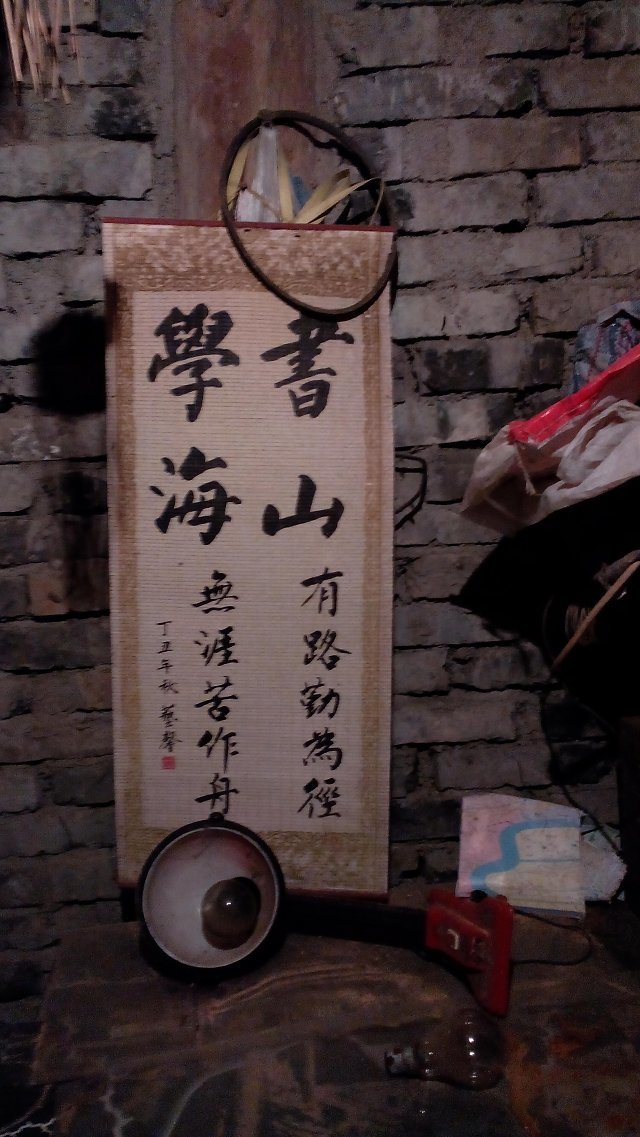 書山有路勤為徑
學海無涯苦作舟
丁丑年秋 藝馨